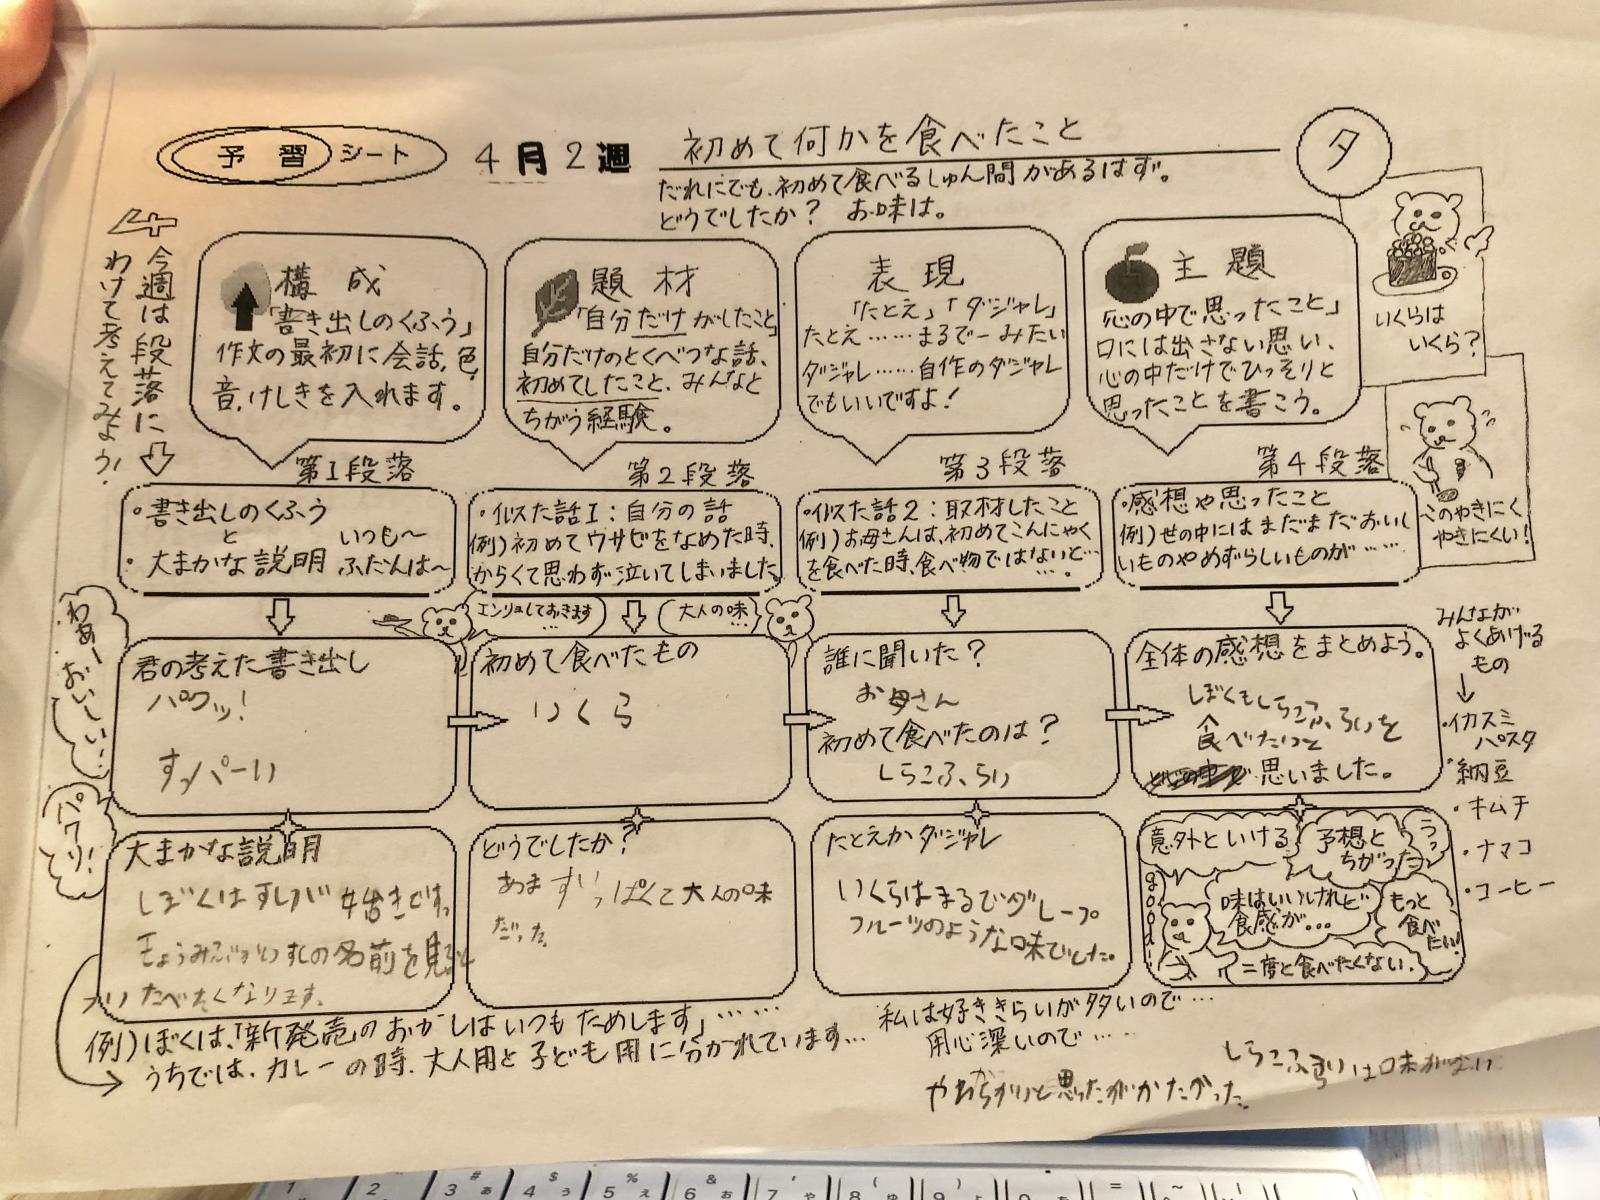 予習シート 4月2週 初めて何かを食べたこと タ
だれにでも、初めて食べるしゅん間があるはず。
どうでしたか? お味は。
今週は段落に
わけて考えてみよう!
構成
「書き出しのくふう」
作文の最初に会話、色、
音、けしきを入れます。
題材
「自分だけがしたこと」
自分だけのとくべつな話、
初めてしたこと、みんなと
ちがう経験。
表現
「たとえ」「ダジャレ」
たとえ……まるでーみたい
ダジャレ……自作のダジャレ
でもいいですよ!
主題
「心の中で思ったこと」
口には出さない思い、
心の中だけでひっそりと
思ったことを書こう。
いくらは
いくら?
このやきにく
やきにくい!
第1段落
・書き出しのくふう
と
・大まかな説明
いつも〜
ふだんは〜
第2段落
・似た話1:自分の話
例)初めてワサビをなめた時、
からくて思わず泣いてしまいました
第3段落
・似た話2:取材したこと
例)お母さんは、初めてこんにゃく
を食べた時、食べ物ではないと…
…。
第4段落
・感想や思ったこと
例)世の中にはまだまだおいし
いものやめずらしいものが……
わぁーおいしい…
パクリ!
エンリョしておきます
…
大人の味
…
君の考えた書き出し
パクッ!
すっパーい
初めて食べたもの
いくら
誰に聞いた?
お母さん
初めて食べたのは?
しらこふらい
全体の感想をまとめよう。
ぼくもしらこふらいを
食べたいと
思いました。
みんなが
よくあげる
もの
・イカスミ
パスタ
・納豆
・キムチ
・ナマコ
・コーヒー
大まかな説明
ぼくはすしが好きです。
きょうみぶかいすしの名前を見ると
つい たべたくなります。
どうでしたか?
あますっぱくて大人の味
だった
たとえかダジャレ
いくらはまるでグレープ
フルーツのような味でした。
意外といける
予想と
ちがった
うっ
good!
味はいいけれど
食感が…
もっと
食べ
たい!
二度と食べたくない.
例)ぼくは、「新発売」のおかしはいつもためします」……
うちでは、カレーの時、大人用と子ども用に分かれています…
私は好ききらいが多いので…
用心深いので……
やわらかいと思ったがかたかった
しらこふらいは味がない